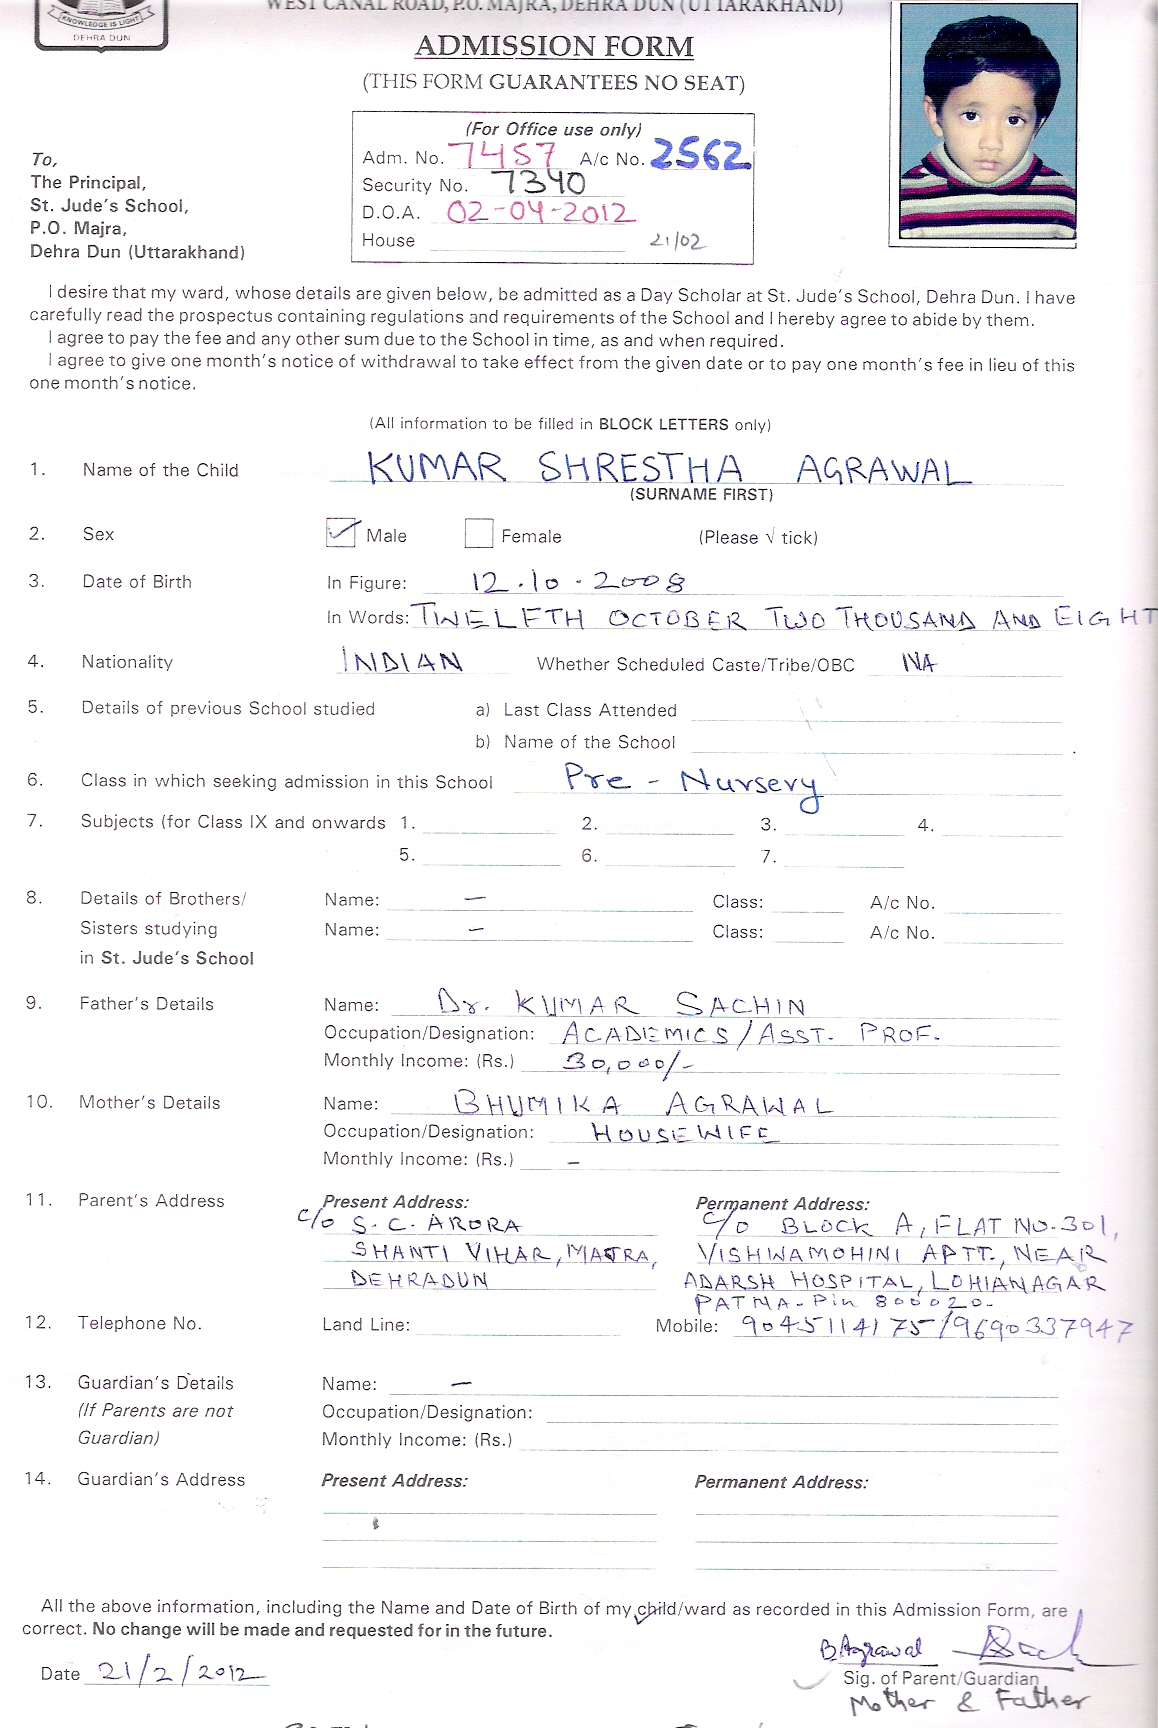 KNOWLEDGE IS LIGHT
DEHRA DUN
WEST CANAL ROAD, P.O. MAJRA, DEHRA DUN (UTTARAKHAND)
ADMISSION FORM
(THIS FORM GUARANTEES NO SEAT)
(For Office use only)
Adm. No. 7457 A/c No. 2562
Security No. 7340
D.O.A. 02-04-2012
House 21/02
To,
The Principal,
St. Jude's School,
P.O. Majra,
Dehra Dun (Uttarakhand)
I desire that my ward, whose details are given below, be admitted as a Day Scholar at St. Jude's School, Dehra Dun. I have
carefully read the prospectus containing regulations and requirements of the School and I hereby agree to abide by them.
I agree to pay the fee and any other sum due to the School in time, as and when required.
I agree to give one month's notice of withdrawal to take effect from the given date or to pay one month's fee in lieu of this
one month's notice.
(All information to be filled in BLOCK LETTERS only)
1. Name of the Child KUMAR SHRESTHA AGRAWAL
(SURNAME FIRST)
2. Sex Male Female (Please √ tick)
3. Date of Birth In Figure: 12.10-2008
In Words: TWELFTH OCTOBER TWO THOUSAND AND EIGHT
4. Nationality INDIAN Whether Scheduled Caste/Tribe/OBC NA
5. Details of previous School studied a) Last Class Attended
b) Name of the School
6. Class in which seeking admission in this School Pre - Nursery
7. Subjects (for Class IX and onwards 1. 2. 3. 4.
5. 6. 7.
8. Details of Brothers/ Name: — Class: A/c No.
Sisters studying Name: — Class: A/c No.
in St. Jude's School
9. Father's Details Name: Dr. KUMAR SACHIN
Occupation/Designation: ACADEMICS/ASST. PROF.
Monthly Income: (Rs.) 30,000/-
10. Mother's Details Name: BHUMIKA AGRAWAL
Occupation/Designation: HOUSEWIFE
Monthly Income: (Rs.) —
11. Parent's Address Present Address: Permanent Address:
C/o S.C. ARORA C/o BLOCK A, FLAT NO-301,
SHANTI VIHAR, MAJRA, VISHWAMOHINI APTT., NEAR
DEHRADUN ADARSH HOSPITAL, LOHIANAGAR
PATNA- Pin 800020-
12. Telephone No. Land Line: Mobile: 9045114175/9690337947
13. Guardian's Details Name: —
(If Parents are not Occupation/Designation:
Guardian) Monthly Income: (Rs.)
14. Guardian's Address Present Address: Permanent Address:
All the above information, including the Name and Date of Birth of my child/ward as recorded in this Admission Form, are
correct. No change will be made and requested for in the future.
BAgrawal
Date 21/2/2012 Sig. of Parent/Guardian
Mother & Father